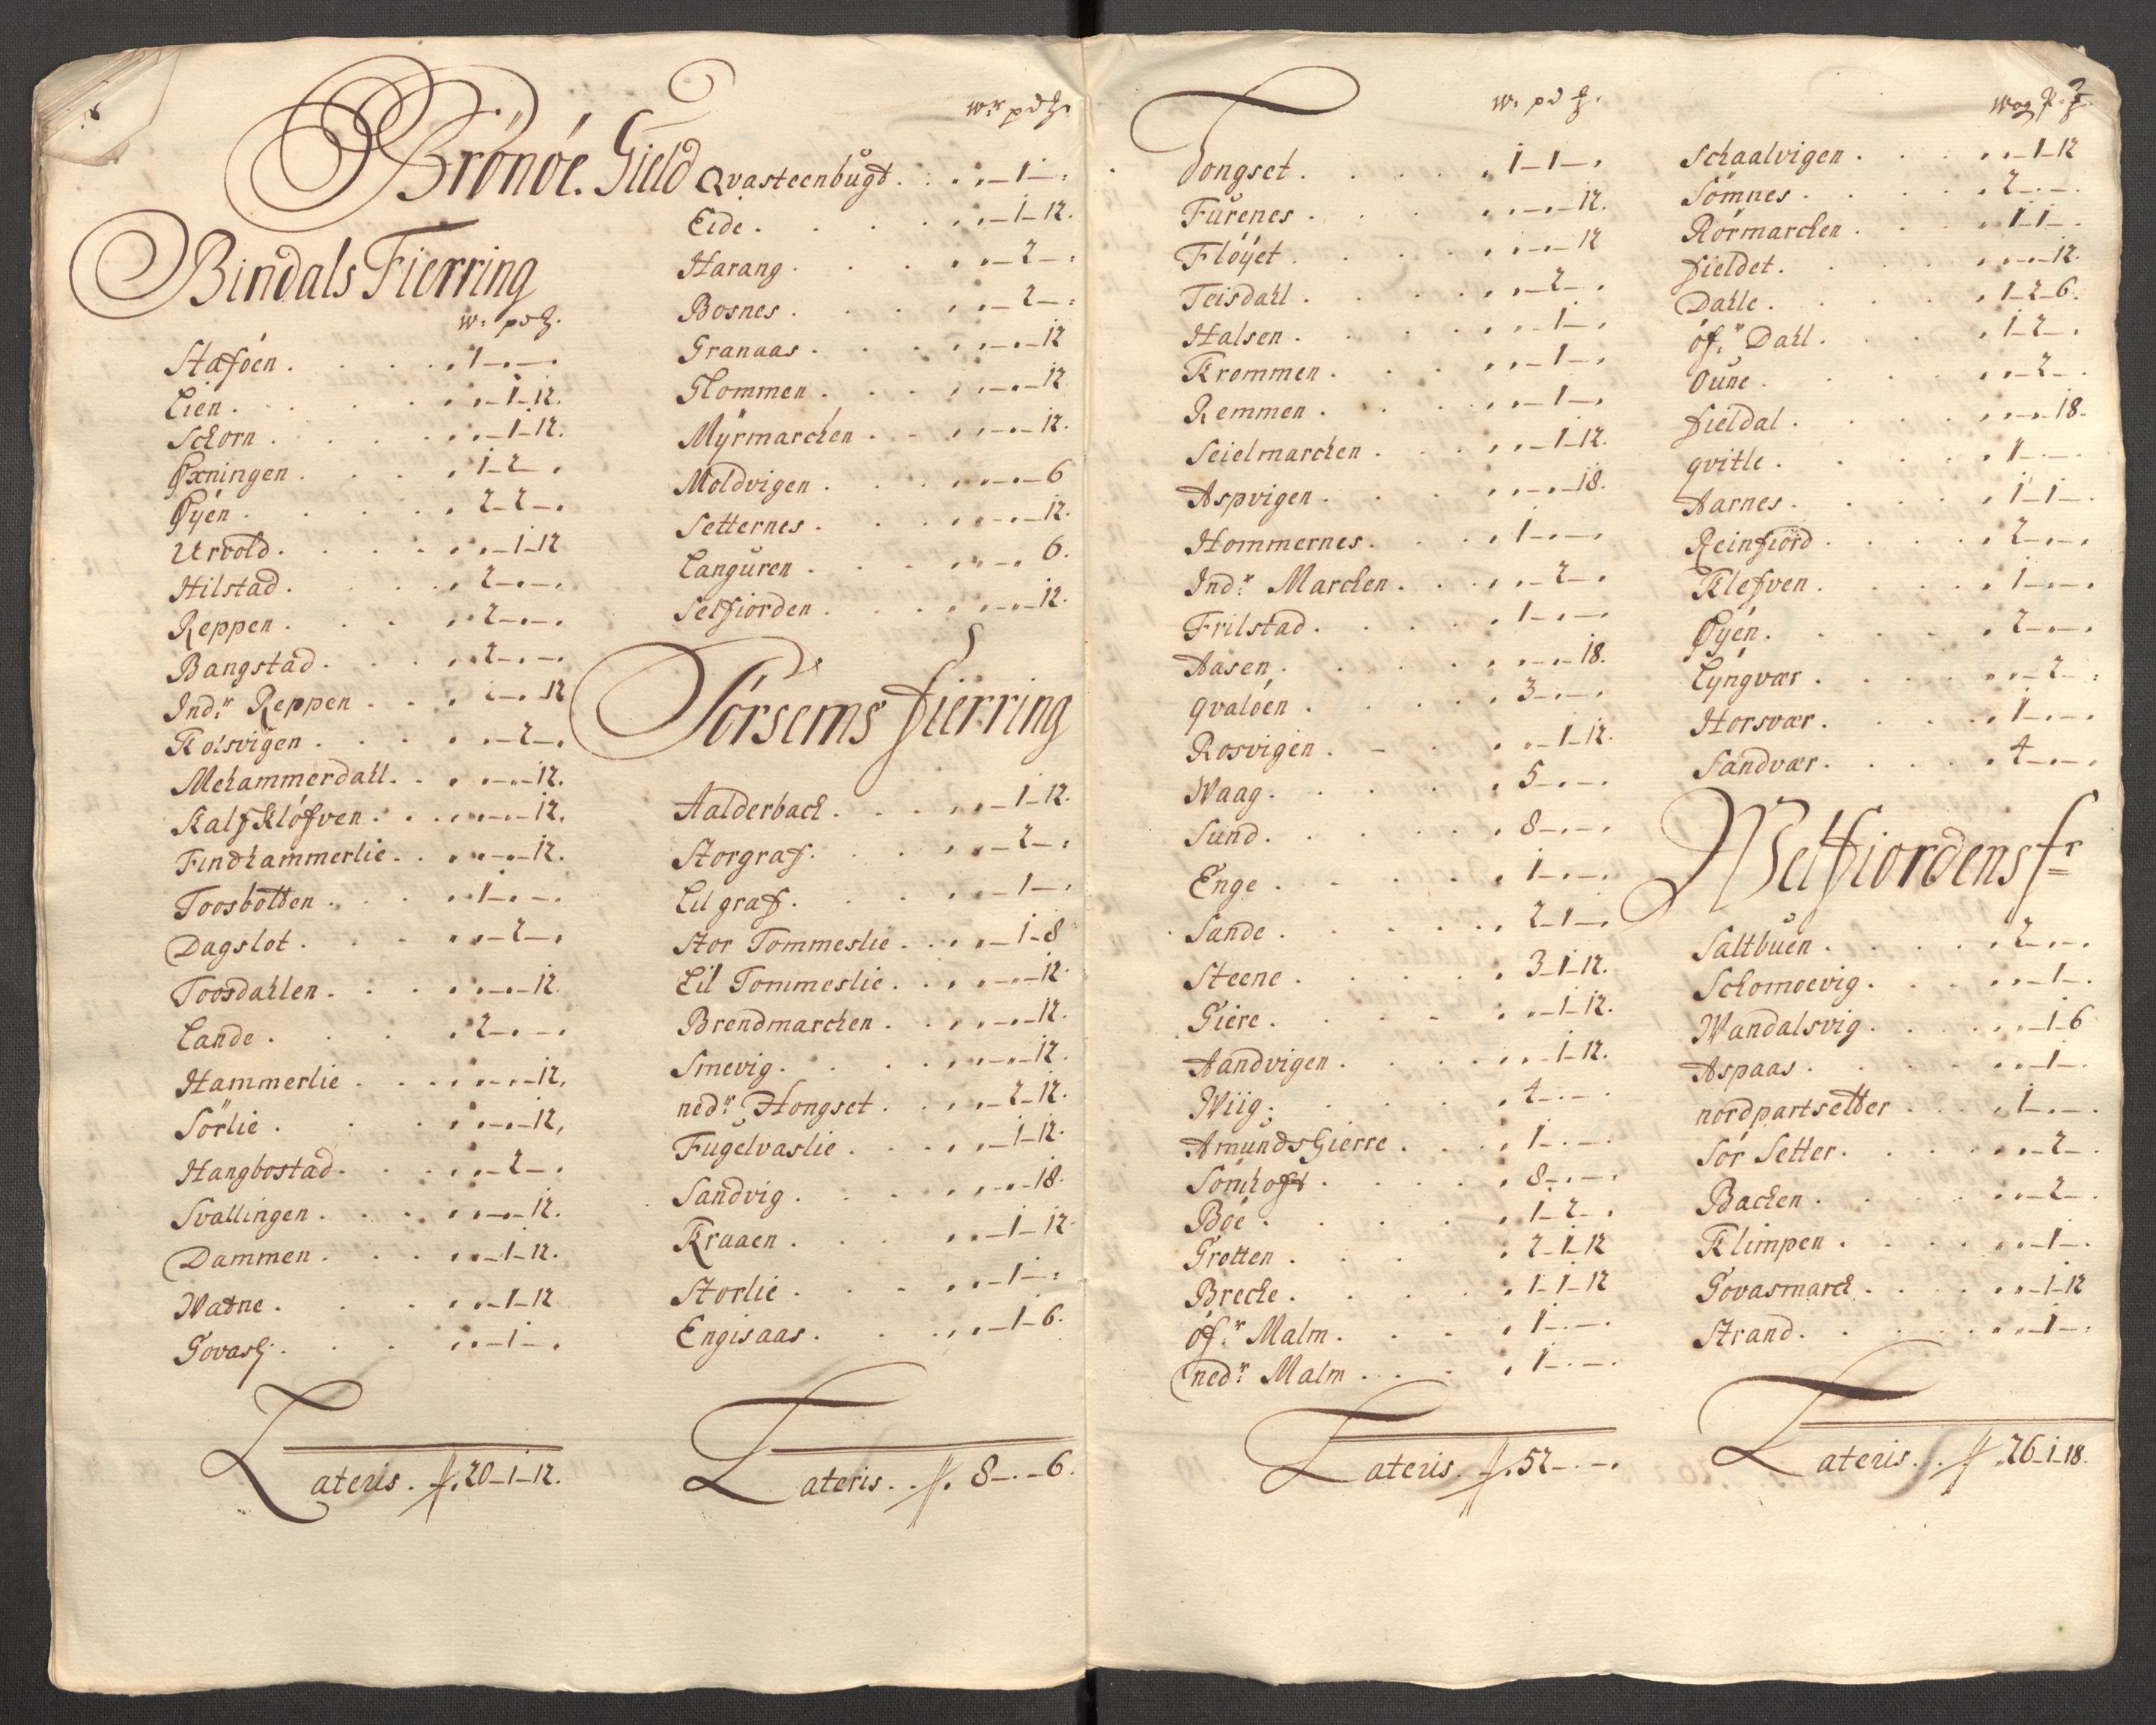 Brönöe. Gield
Bindals Fierring
w. pd ℔.
Staföen . . . . . 1 - . - .
Lien . . . . . . . - 1 - 12.
Schorn . . . . . . - 1 - 12.
Øxningen . . . . . 1 - 2 - .
Øÿen . . . . . 2 - 2 - .
Urvold . . . . . . - 1 - 12
Hilstad . . . . . 2 - . - .
Reppen . . . . . 2 - . - .
Bangstad . . . . 2 - . - .
Ind:r Reppen . . . 2 - . - 12
Kolsvigen . . . . . - 2 - .
Mehammerdahl . . . - . - 12.
Kalfklöfven . . . - . - 12.
Findhammerlie . . . - . - 12.
Toosbotten . . . . 1 - . - .
Dagslot . . . . . - 2 - .
Toosdahlen . . . . - . - 12.
Lande . . . . . 2 - . - .
Hammerlie . . . . - . - 12.
Sörlie . . . . . - . - 12.
Hangbostad . . . . - 2 - .
Svallingen . . . . - . - 12.
Dammen . . . . . - 1 - 12.
Watne . . . . . - 1 - 12
Govasli . . . . . - 1 - .
Lateris . 20 - 1 - 12.
w:r pd ℔.
Qvasteenbugt . . . . - 1 - :
Eide . . . . . . - 1 - 12.
Harang . . . . . - 2 - :
Bosnes . . . . . - 2 - :
Granaas . . . . . - . - 12
Glommen . . . . . - . - 12
Mÿrmarchen . . . . - . - 12.
Moldvigen . . . . - . - 6
Setternes . . . . - . - 12.
Languren . . . . - . - 6.
Selfiorden . . . . - . - 12.
Törsems fierring
Aalderbach . . . . - 1 - 12.
Storgraf . . . . - 2 - :
Lil graf . . . . - 1 - :
Stor Tommeslie . . . - 1 - 8
Lil Tommeslie . . . - . - 12.
Brendmarchen . . . - . - 12.
Smevig . . . . . - . - 12.
ned:r Hongset . . . - 2 - 12.
Fugelvaslie . . . . - 1 - 12.
Sandvig . . . . . - . - 18.
Kraaen . . . . . - 1 - 12.
Storlie . . . . . - 1 - :
Engisaas . . . . . - 1 - 6.
Lateris . . 8 - . - 6.
w. pd ℔.
Tongset . . . . . 1 - 1 - .
Furenes . . . . . - . - 12.
Flöÿet . . . . . - . - 12
Teisdahl . . . . . - 2 - .
Halsen . . . . . - 1 - .
Krommen . . . . . - 1 - .
Remmen . . . . . - 1 - .
Seielmarchen . . . . - 1 - 12.
Aspvigen . . . . . - . - 18.
Hommernes . . . . 1 - . - .
Ind:r Marchen . . . . - 2 - .
Frilstad . . . . . 1 - . - .
Aasen . . . . . - . - 18.
qvalöen . . . . . 3 - . - .
Rosvigen . . . . - 1 - 12.
Waag . . . . . 5 - . - .
Sund . . . . . 8 - . - .
Enge . . . . . 1 - . - .
Sande . . . . . 2 - 1 - .
Steene . . . . . 3 - 1 - 12.
Giere . . . . . - 1 - 12.
Aandvigen . . . . - 1 - 12.
Wiig . . . . . 4 - . - .
Amunds Gierre . . . . 1 - . - .
Sömhoft . . . . . 8 - . - .
Böe . . . . . 1 - 2 - .
Grotten . . . . . 2 - 1 - 12
Breche . . . . . 1 - 1 - 12
öf:r Malm . . . . 1 - . - .
ned:r Malm . . . . 1 - . - .
Lateris . 52 - . - .
wog P. ℔.
Schaalvigen . . . . - 1 - 12
Sömnes . . . . . 2 - . - .
Rörmarchen . . . . 1 - 1 - .
fieldet . . . . . - . - 12.
Dahle . . . . . 1 - 2 - 6.
öf:r Dahl . . . . 1 - 2 - .
Oune . . . . . - 2 - .
fieldal . . . . . - . - 18.
qvitle . . . . . 1 - . - .
Aarnes . . . . . 1 - 1 - .
Reinfiord . . . . 2 - . - .
Klefven . . . . . 1 - . - .
Øÿen . . . . . 2 - . - .
Lÿngvær . . . . . - 2 - :
Horsvær . . . . . 1 - . - .
Sandvær . . . . . 4 - . - .
Welfiordens fr
Saltbuen . . . . . 2 - . - .
Schomoevig . . . . - 1 - .
Wandalsvig . . . . - 1 - 6
Aspaas . . . . . - 1 - .
nordpartsetter . . . 1 - . - .
Sör Setter . . . . - 2 - .
Bachen . . . . . - 2 - .
Klimpen . . . . . - 1 - .
Govasmarch . . . . - 1 - 12
Strand . . . . . - 1 - :
Lateris . . 26 - 1 - 18.